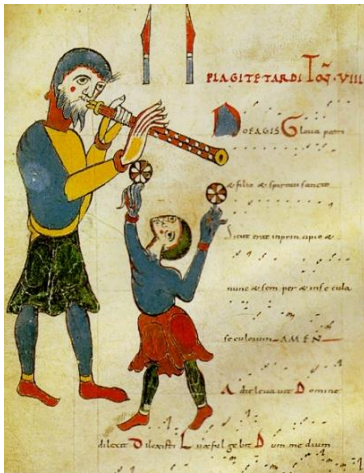 PLAGI TETARDI TOŃ·VIII
NOEAGIS Gloria patri
& filio & spiritui sancto
Sicut erat in principio &
nunc & semper & in secula
seculorum AMEN
Ad te levavit Domine
dilexit Dilexisti Lux fulgebit Dum medium